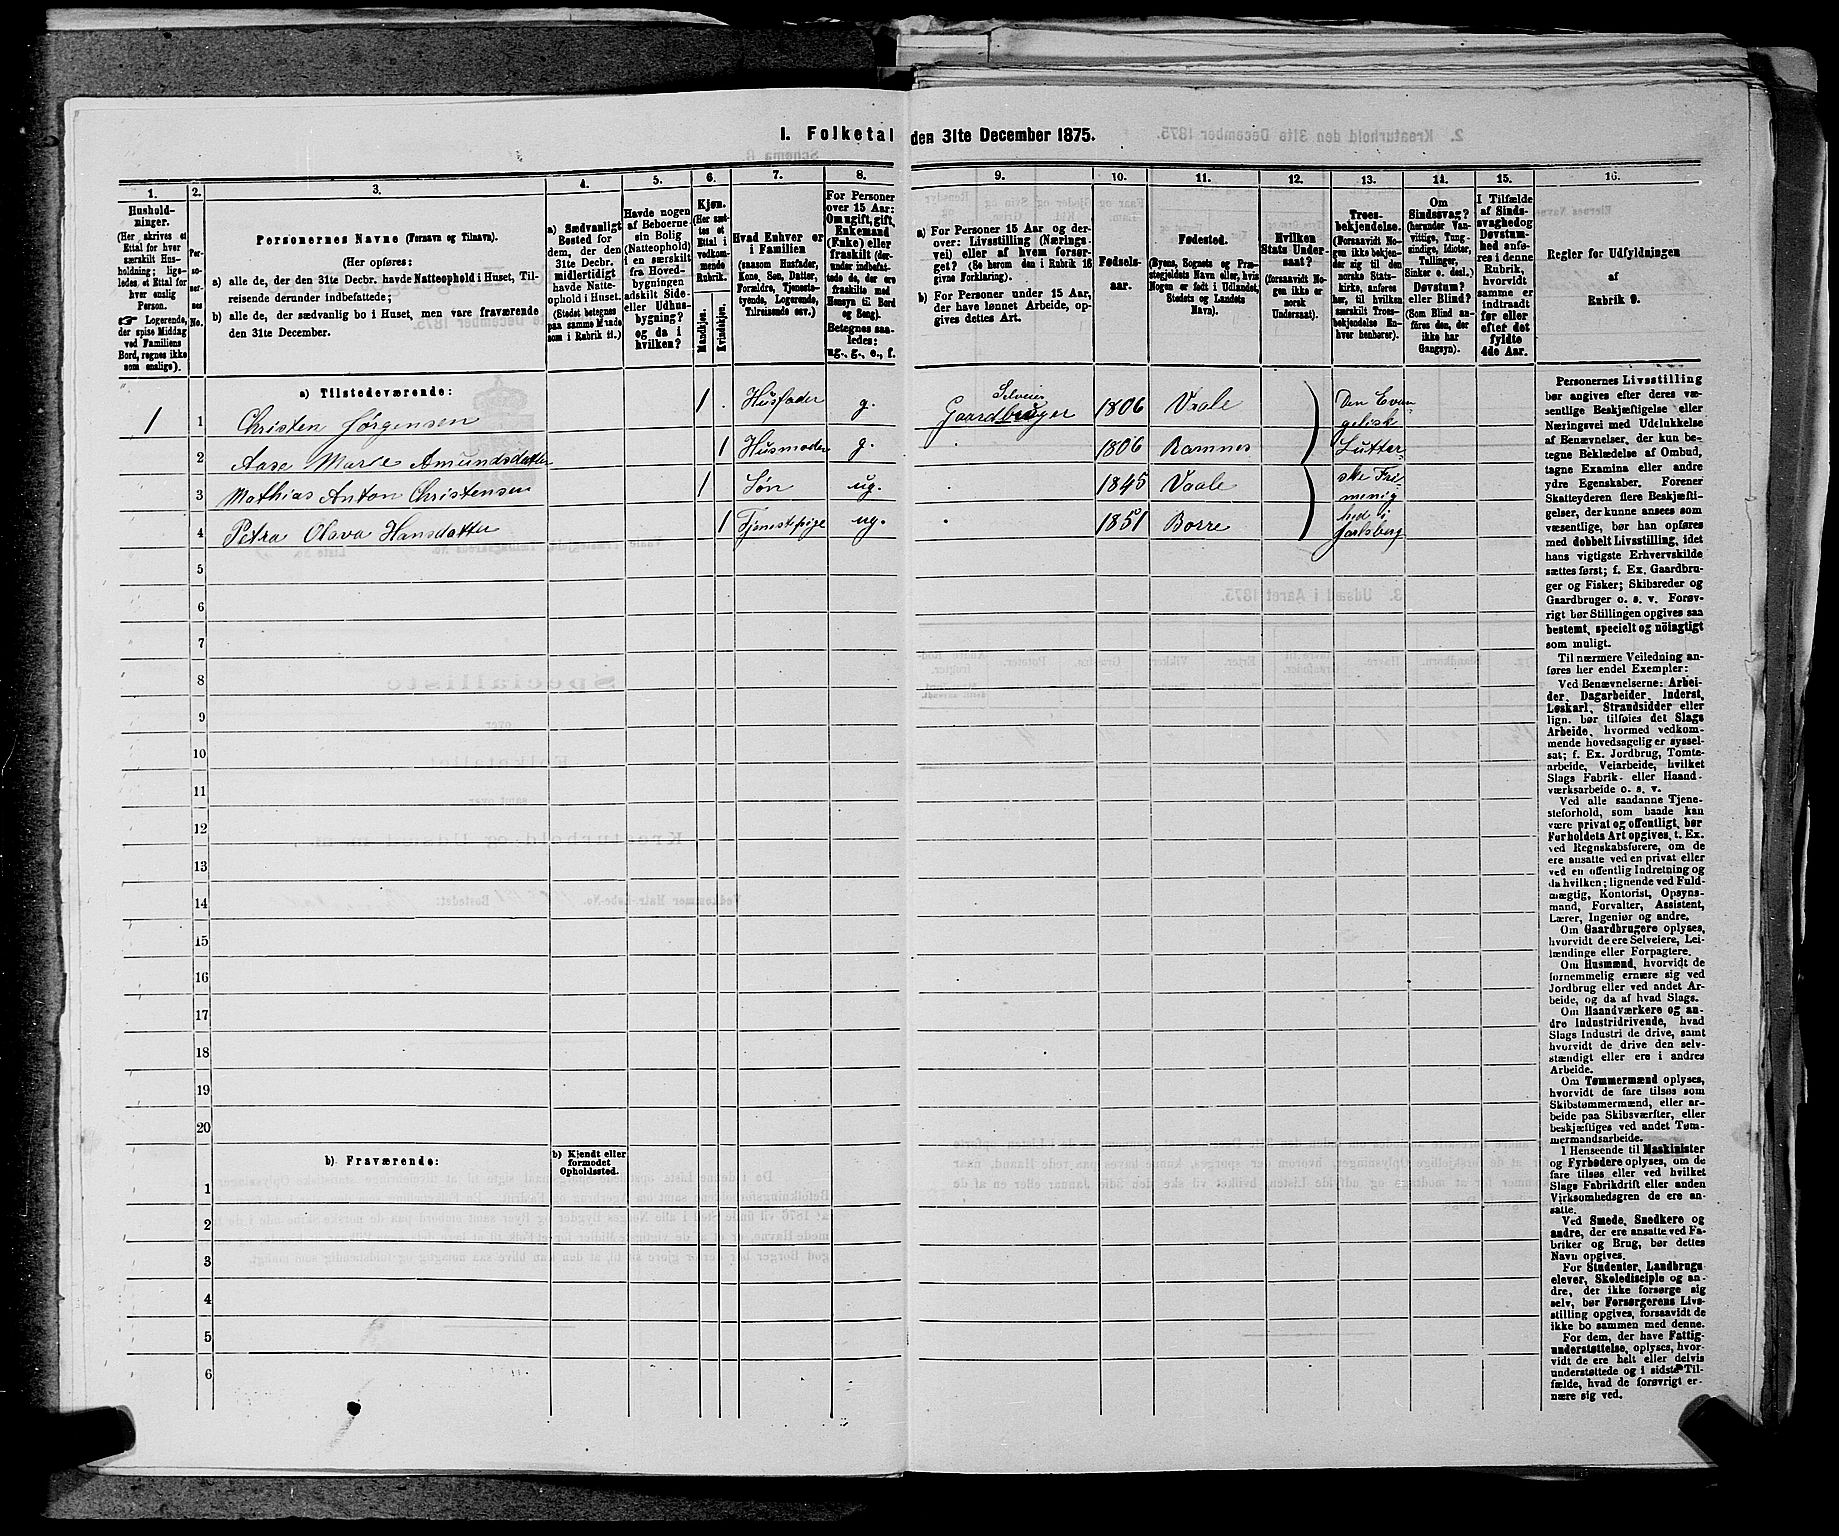 1. Folketal den 31te December 1875.
1. 2. 3. 4. 5. 6. 7. 8. 9. 10. 11. 12. 13. 14. 15. 16.
Hushold-
ninger.
(Her skrives et
Ettal for hver
særskilt Hus-
holdning; lige-
ledes et Ettal for
hver enslig
Person.
☞ Logerende,
der spise Middag
ved Familiens
Bord, regnes ikke
som enslige).
Per-
so-
ner-
nes
No.
Personernes Navne (Fornavn og Tilnavn).
(Her opføres:
a) alle de, der den 31te Decbr. havde Natteophold i Huset, Til-
reisende derunder indbefattede;
b) alle de, der sædvanlig bo i Huset, men vare fraværende
den 31te December.
a) Sædvanligt
Bosted for
dem, der den
31te Decbr.
midlertidigt
havde Natte-
ophold i Huset.
(Stedet betegnes
paa samme Maade
som i Rubrik 11.)
Havde nogen
af Beboerne
sin Bolig
(Natteophold)
i en særskilt
fra Hoved-
bygningen
adskilt Side-
eller Udhus-
bygning?
og da i
hvilken?
Kjøn.
(Her sæt-
tes et
Ettal i
vedkom-
mende
Rubrik.)
Mandkjøn.
Kvindekjøn.
Hvad Enhver er
i Familien
(saasom Husfader,
Kone, Søn, Datter,
Forældre, Tjeneste-
tyende, Logerende,
Tilreisende osv.)
For Personer
over 15 Aar:
Om ugift, gift,
Enkemand
(Enke) eller
fraskilt (der-
under indbefat-
tede de, der ere
fraskilte med
Hensyn til Bord
og Seng).
Betegnes saa-
ledes:
ug., g., e., f.
a) For Personer 15 Aar og der-
over: Livsstilling (Nærings-
vei) eller af hvem forsør-
get? (Se herom den i Rubrik 16
givne Forklaring).
b) For Personer under 15 Aar,
der have lønnet Arbeide, op-
gives dettes Art.
Fødsels-
aar.
Fødested.
(Byens, Sognets og Præ-
stegjeldets Navn eller, hvis
Nogen er født i Udlandet,
Stedets og Landets
Navn).
Hvilken
Stats Under-
saat?
(forsaavidt No-
gen ikke er
norsk
Undersaat).
Troes-
bekjendelse.
(Forsaavidt No-
gen ikke bekjen-
der sig til den
norske Stats-
kirke, anføres
her, til hvilken
særskilt Troes-
bekjendelse En-
hver henhører).
Om
Sindssvag?
(herunder Van-
vittige, Tung-
sindige, Idioter,
Tullinger,
Sinker o. desl.)
Døvstum?
eller Blind?
(Som Blind an-
føres den, der
ikke har
Gangsyn).
I Tilfælde
af Sinds-
svaghed og
Døvstum-
hed anfø-
res i denne
Rubrik,
hvorvidt
samme er
indtraadt
før eller
efter det
fyldte
4de Aar.
Regler for Udfyldningen
af
Rubrik 9.
a) Tilstedeværende:
1 1 Christen Jørgensen 1 . Husfader g. Selveier Gaardbruger 1806 Vaale
2 Aase Marie Amundsdatter 1 Husmoder g. 1806 Ramnes
3 Mathias Anton Christensen 1 Søn ug. 1845 Vaale
4 Petra Olava Hansdatter 1 Tjenestepige ug. 1851 Borre
Den Evan
gelisk
Lutter-
ske Fri-
menig
hed i
Jarlsberg
5
6
7
8
9
10
11
12
13
14
15
16
17
18
19
20
b) Fraværende:
b) Kjendt eller
formodet
Opholdssted.
1
2
3
4
5
6
Personernes Livsstilling
bør angives efter deres væ-
sentlige Beskjæftigelse eller
Næringsvei med Udelukkelse
af Benævnelser, der kun be-
tegne Beklædelse af Ombud,
tagne Examina eller andre
ydre Egenskaber. Forener
Skatteyderen flere Beskjæfti-
gelser, der kunne ansees som
væsentlige, bør han opføres
med dobbelt Livsstilling, idet
hans vigtigste Erhvervskilde
sættes først; f. Ex. Gaardbru-
ger og Fisker; Skibsreder og
Gaardbruger o. s. v. Forøv-
rigt bør Stillingen opgives saa
bestemt, specielt og nöiagtigt
som muligt.
Til nærmere Veiledning an-
føres her endel Exempler:
Ved Benævnelserne: Arbei-
der, Dagarbeider, Inderst,
Løskarl, Strandsidder eller
lign. bør tilføies det Slags
Arbeide, hvormed vedkom-
mende hovedsagelig er syssel-
sat; f. Ex. Jordbrug, Tomte-
arbeide, Veiarbeide, hvilket
Slags Fabrik- eller Haand-
værksarbeide o. s. v.
Ved alle saadanne Tjene-
steforhold, som baade kan
være privat og offentligt, bør
Forholdets Art opgives, t. Ex.
ved Regnskabsførere, om de
ere ansatte ved en privat eller
ved en offentlig Indretning og
da hvilken; lignende ved Fuld-
mægtig, Kontorist, Opsyns-
mand, Forvalter, Assistent,
Lærer, Ingeniør og andre.
Om Gaardbrugere oplyses,
hvorvidt de ere Selveiere, Lei-
lændinge eller Forpagtere.
Om Husmænd, hvorvidt de
fornemmelig ernære sig ved
Jordbrug eller ved andet Ar-
beide, og da af hvad Slags.
Om Haandværkere og an-
dre Industridrivende, hvad
Slags Industri de drive, samt
hvorvidt de drive den selv-
stændigt eller ere i andres
Arbeide.
Om Tømmermænd oplyses,
hvorvidt de fare tilsøs som
Skibstømmermænd, eller ar-
beide paa Skibsværfter, eller
beskjæftiges ved andet Tøm-
mermandsarbeide.
I Henseende til Maskinister
og Fyrbødere oplyses, om de
fare tilsøs eller ved hvilket
Slags Fabrikdrift eller anden
Virksomhedsgren de ere an-
satte.
Ved Smede, Snedkere og
andre, der ere ansatte ved Fa-
briker og Brug, bør dettes
Navn opgives.
For Studenter, Landbrugs-
elever, Skoledisciple og an-
dre, der ikke forsørge sig
selv, bør Forsørgerens Livs-
stilling opgives, forsaavidt de
ikke bo sammen med denne.
For dem, der have Fattig-
understøttelse, oplyses, hvor-
vidt de ere helt eller delvis
understøttede og i sidste Til-
fælde, hvad de forøvrigt er-
nære sig ved.